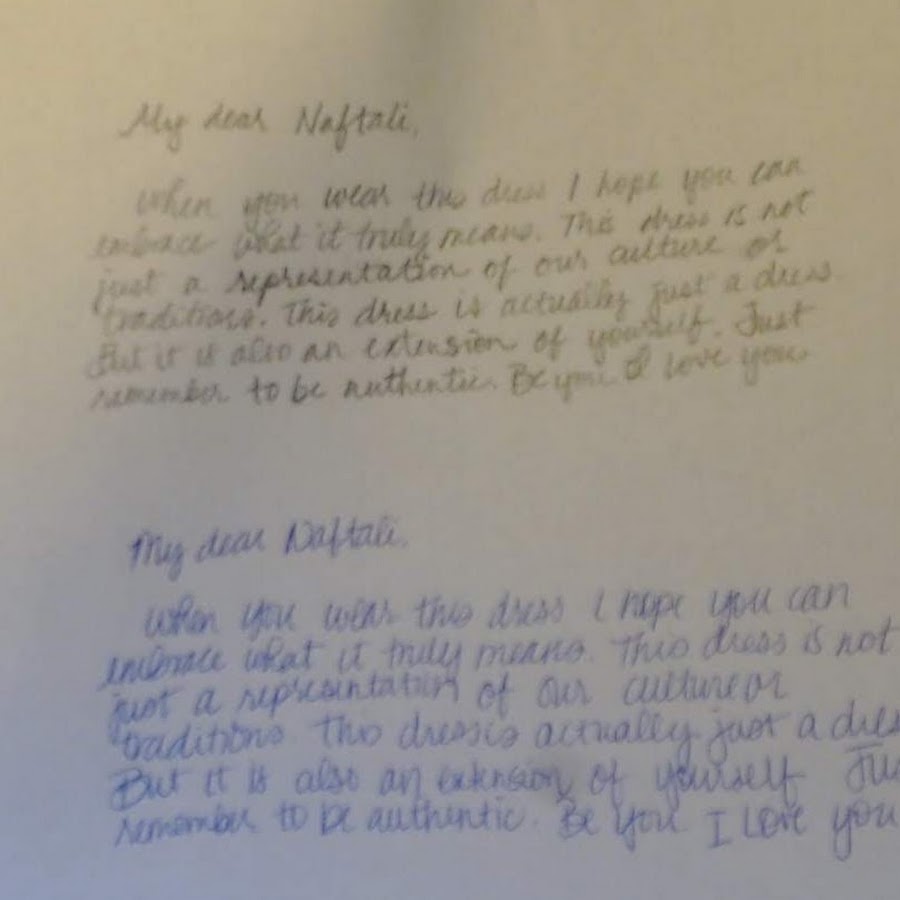 My dear Naftali,
When you wear this dress I hope you can
embrace what it truly means. This dress is not
just a representation of our culture or
traditions. This dress is actually just a dress.
But it is also an extension of yourself. Just
remember to be authentic. Be you. I love you
My dear Naftali,
When you wear this dress I hope you can
embrace what it truly means. This dress is not
just a representation of our culture or
traditions. This dress is actually just a dres
But it is also an extension of yourself Ju
remember to be authentic. Be you I Love you